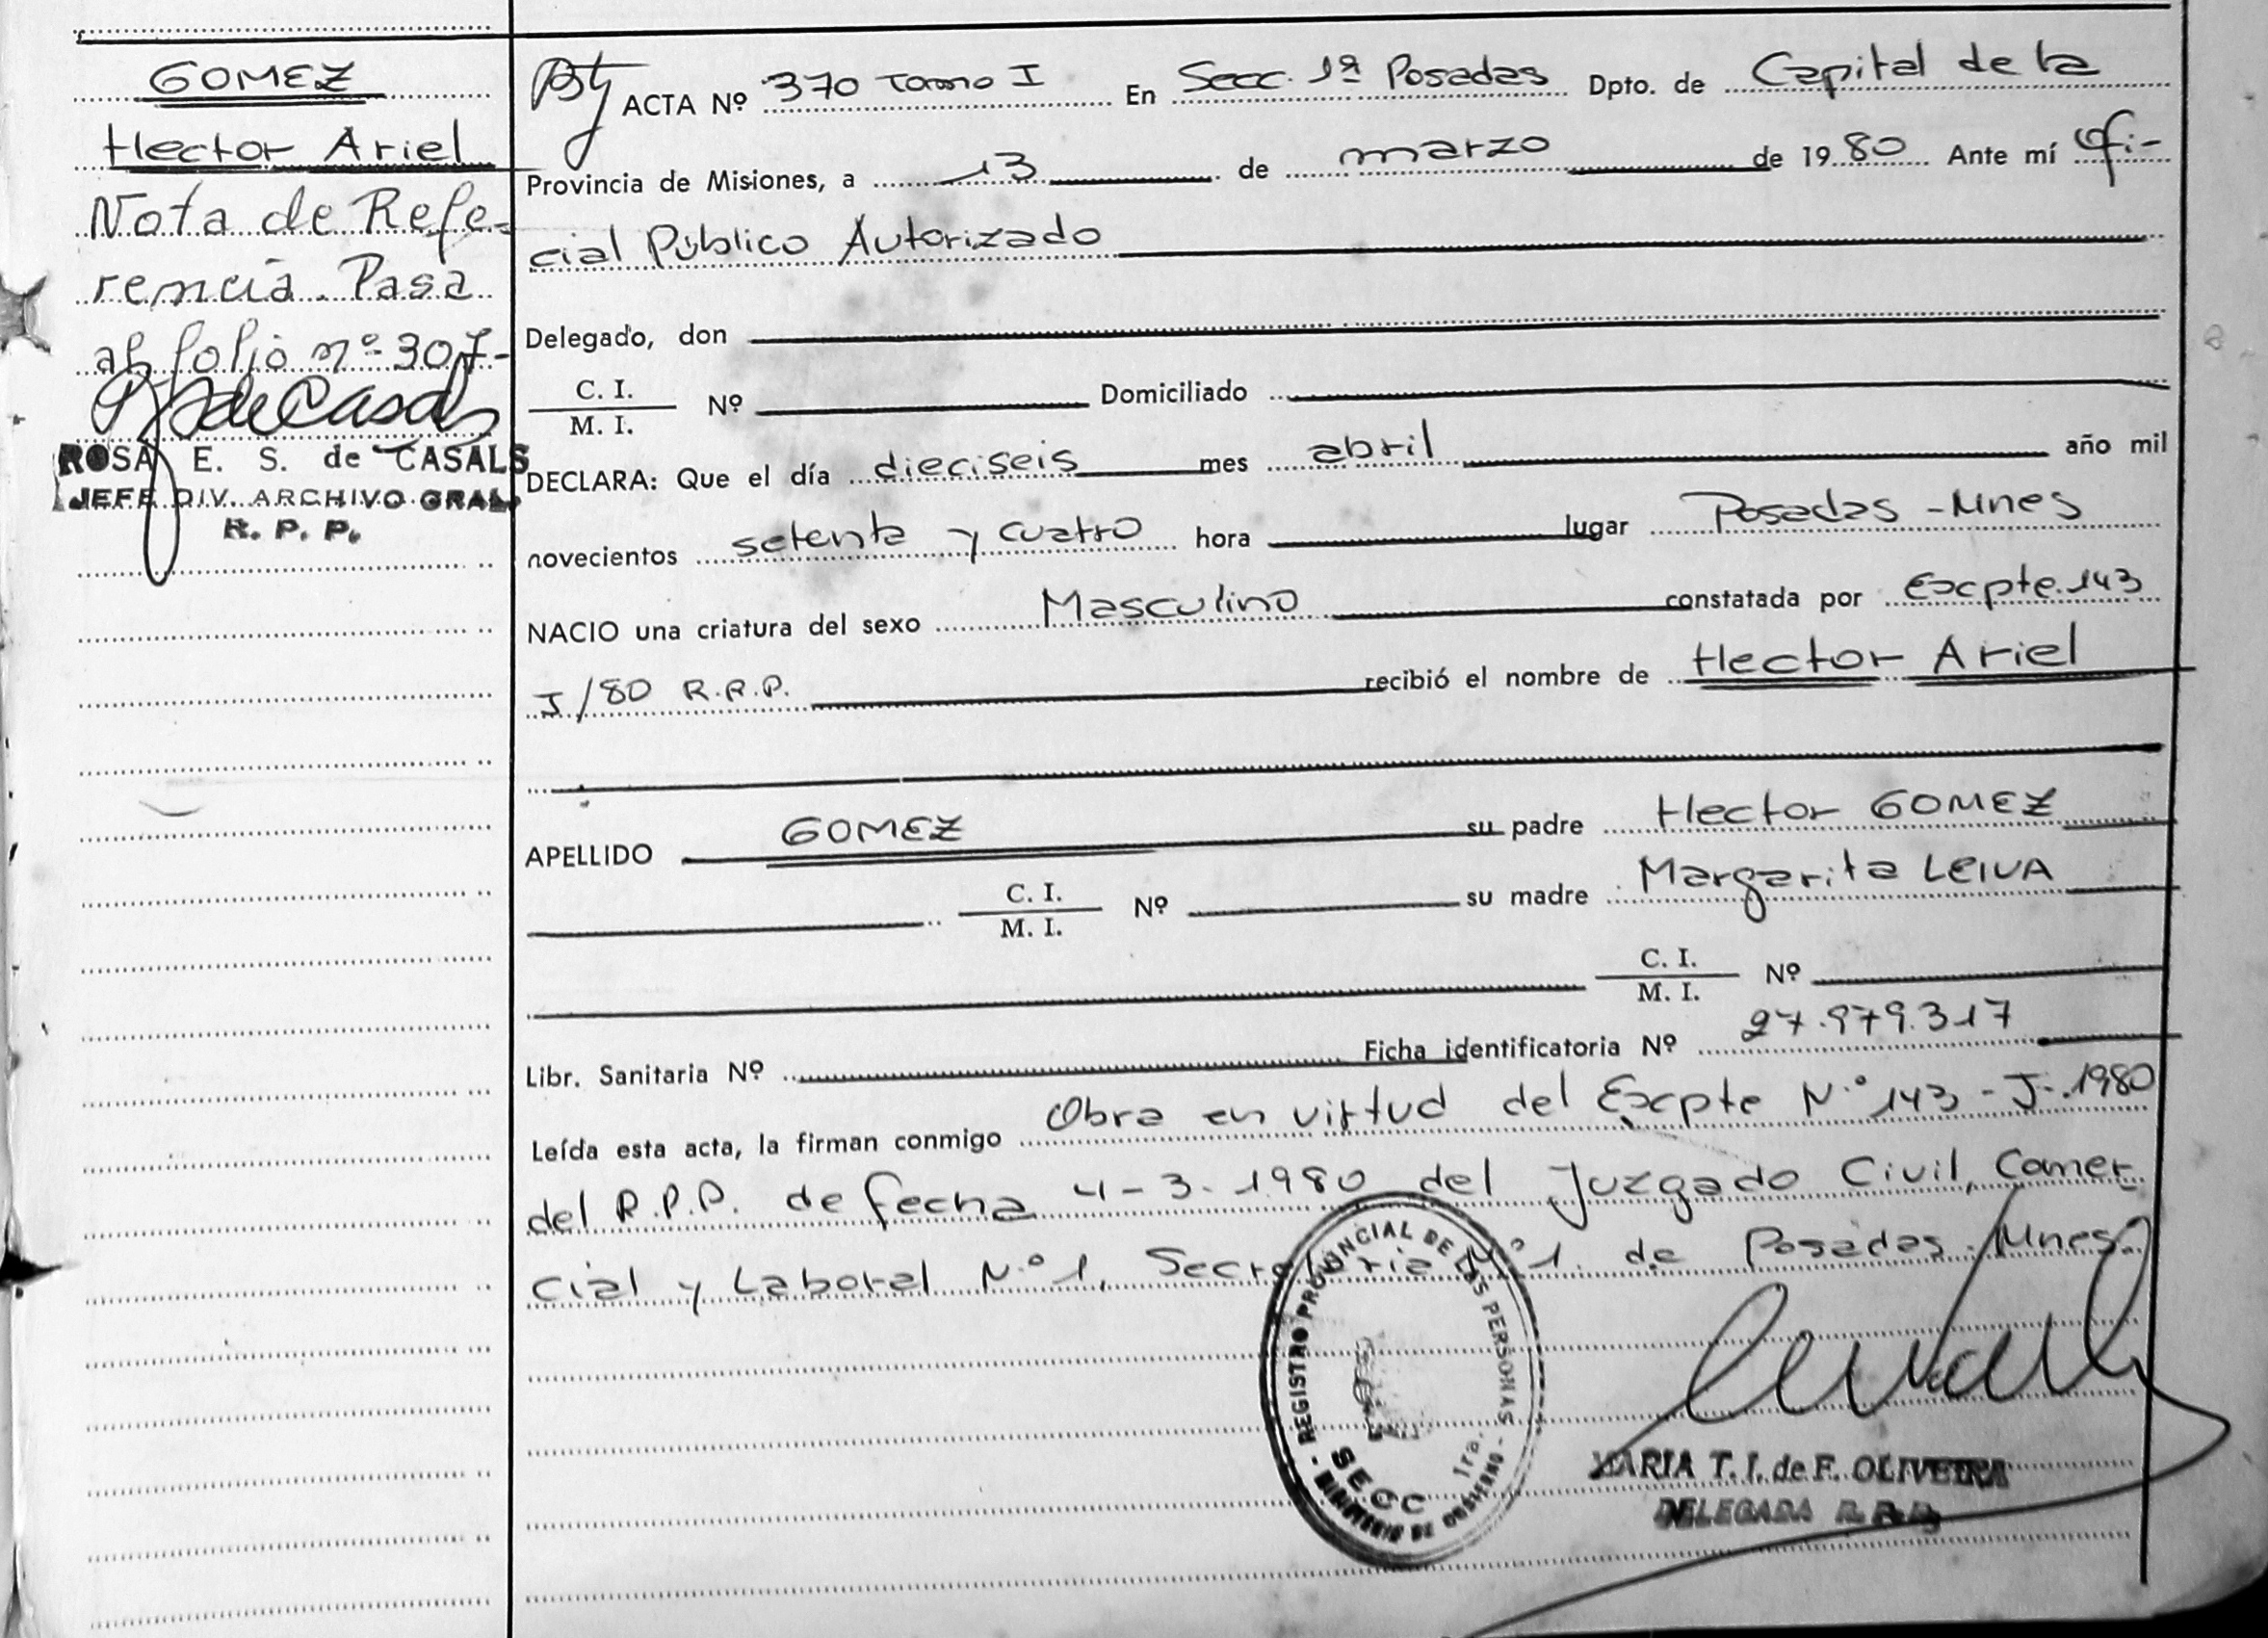 GOMEZ
Hector Ariel
Nota de Refe-
rencia. Pasa
al folio nº 307-
de Casals
ROSA E. S. de CASALS
JEFE DIV. ARCHIVO GRAL.
R. P. P.
ACTA Nº 370 Tomo I En Secc. 1ª Posadas Dpto. de Capital de la
Provincia de Misiones, a 13 de marzo de 1980 Ante mí Ofi-
cial Público Autorizado
Delegado, don
C. I.
M. I. Nº Domiciliado
DECLARA: Que el día dieciseis mes abril año mil
novecientos setenta y cuatro hora lugar Posadas - Mnes
NACIO una criatura del sexo Masculino constatada por Excpte. 143
J/80 R.R.P. recibió el nombre de Hector Ariel
APELLIDO GOMEZ su padre Hector GOMEZ
C. I.
M. I. Nº su madre Margarita LEIVA
C. I.
M. I. Nº
Libr. Sanitaria Nº Ficha identificatoria Nº 27.979.317
Leída esta acta, la firman conmigo Obra en virtud del Excpte Nº 143 - J-.1980
del R.P.P. de fecha 4-3-1980 del Juzgado Civil, Comer-
cial y Laboral Nº 1, Secretaria Nº 1. de Posadas. Mnes.
- REGISTRO PROVINCIAL DE LAS PERSONAS -
SECC 1ra.
MINISTERIO DE GOBIERNO
MARIA T. I. de F. OLIVEIRA
DELEGADA R. P. P.